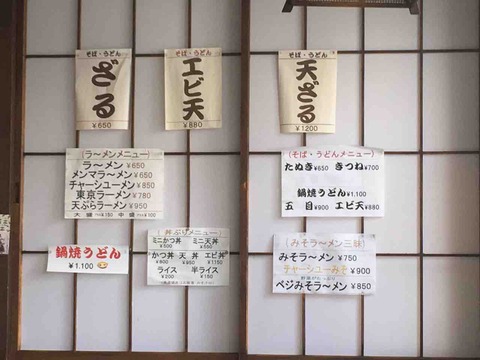 そば・うどん
ざる
¥650
そば・うどん
エビ天
¥880
そば・うどん
天ざる
¥1200
(ラ〜メンメニュー)
ラ〜メン¥650
メンマラ〜メン¥650
チャーシューメン¥850
東京ラーメン¥780
天ぷらラーメン¥950
鍋焼うどん
¥1.100
(丼ぶりメニュー)
ミニかつ丼 ミニ天丼
¥500 ¥550
かつ丼 天丼 エビ丼
¥850 ¥950 ¥1150
ライス 半ライス
¥200 ¥150
(そば・うどんメニュー)
たぬき¥650 きつね¥700
鍋焼うどん¥1.100
五目¥900 エビ天¥880
(みそラ〜メン三昧)
みそラ〜メン ¥750
チャーシューみそ ¥900
ベジみそラ〜メン ¥850